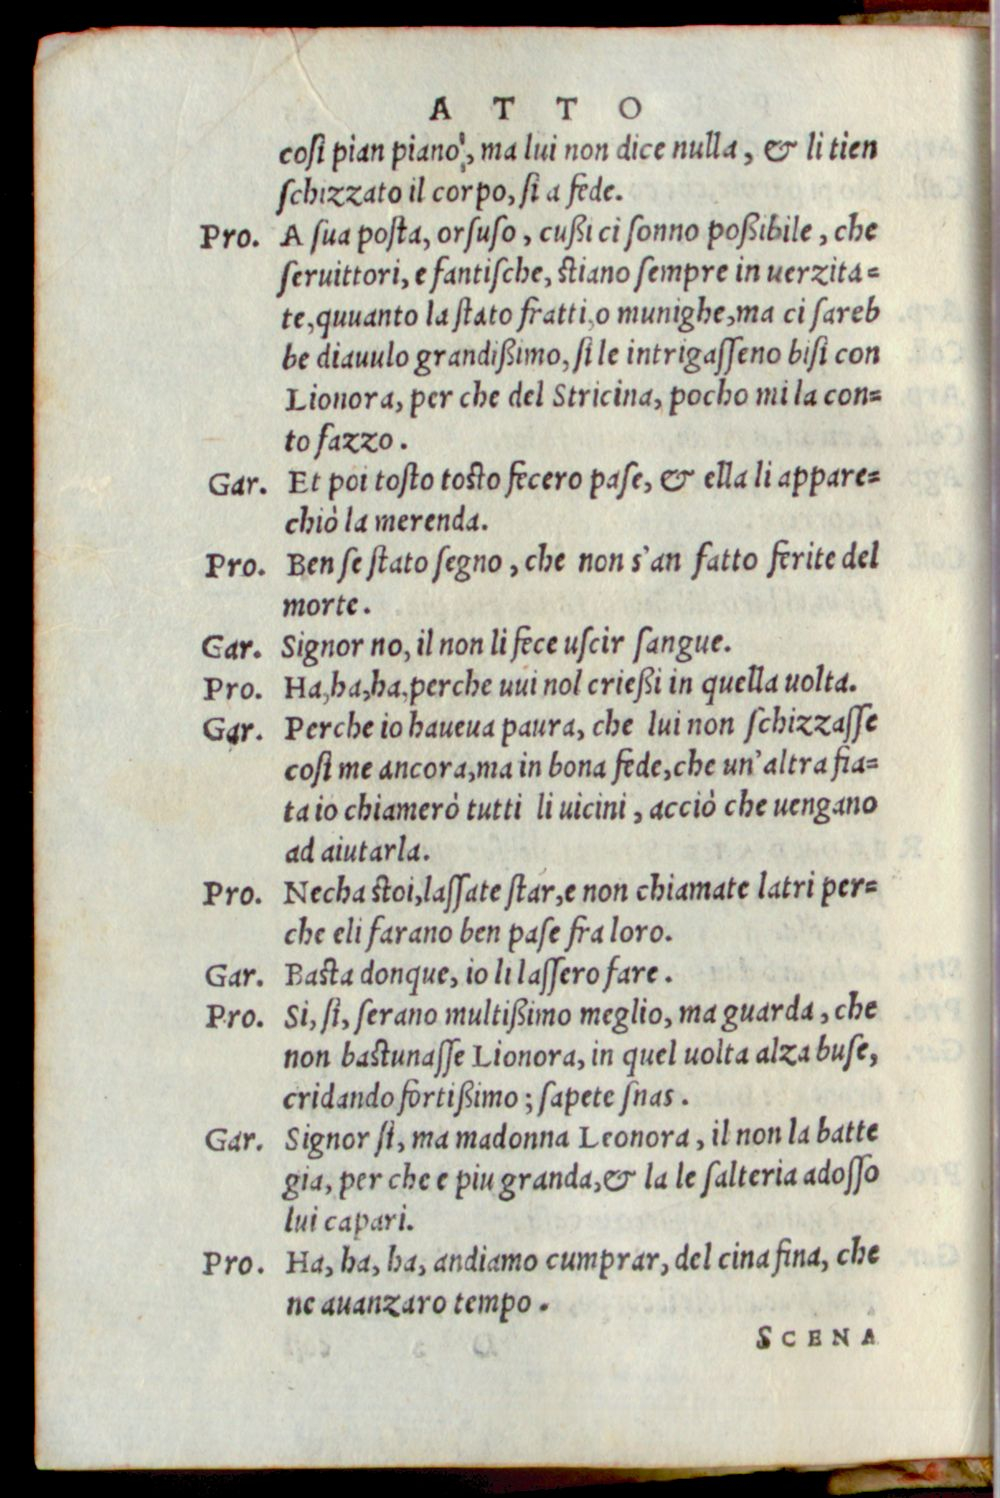 A T T O
coſi pian piano, ma lui non dice nulla, & li tien
ſchizzato il corpo, ſi a fede.
Pro. A ſua poſta, orſuſo, cußi ci ſonno poßibile, che
ſeruittori, e fantiſche, ſtiano ſempre in uerzita=
te, quuanto la ſtato fratti, o munighe, ma ci ſareb
be diauulo grandißimo, ſi le intrigaſſeno biſi con
Lionora, per che del Stricina, pocho mi la con=
to fazzo.
Gar. Et poi toſto toſto fecero paſe, & ella li appare=
chiò la merenda.
Pro. Ben ſe ſtato ſegno, che non s'an fatto ferite del
morte.
Gar. Signor no, il non li fece uſcir ſangue.
Pro. Ha, ha, ha, perche uui nol crießi in quella uolta.
Gar. Perche io haueua paura, che lui non ſchizzaſſe
coſi me ancora, ma in bona fede, che un'altra fia=
ta io chiamerò tutti li uicini, acciò che uengano
ad aiutarla.
Pro. Necha ſtoi, laſſate ſtar, e non chiamate latri per=
che eli farano ben paſe fra loro.
Gar. Baſta donque, io li laſſero fare.
Pro. Si, ſi, ſerano multißimo meglio, ma guarda, che
non baſtunaſſe Lionora, in quel uolta alza buſe,
cridando fortißimo; ſapete ſnas.
Gar. Signor ſi, ma madonna Leonora, il non la batte
gia, per che e piu granda, & la le ſalteria adoſſo
lui capari.
Pro. Ha, ha, ha, andiamo cumprar, del cina fina, che
ne auanzaro tempo.
SCENA